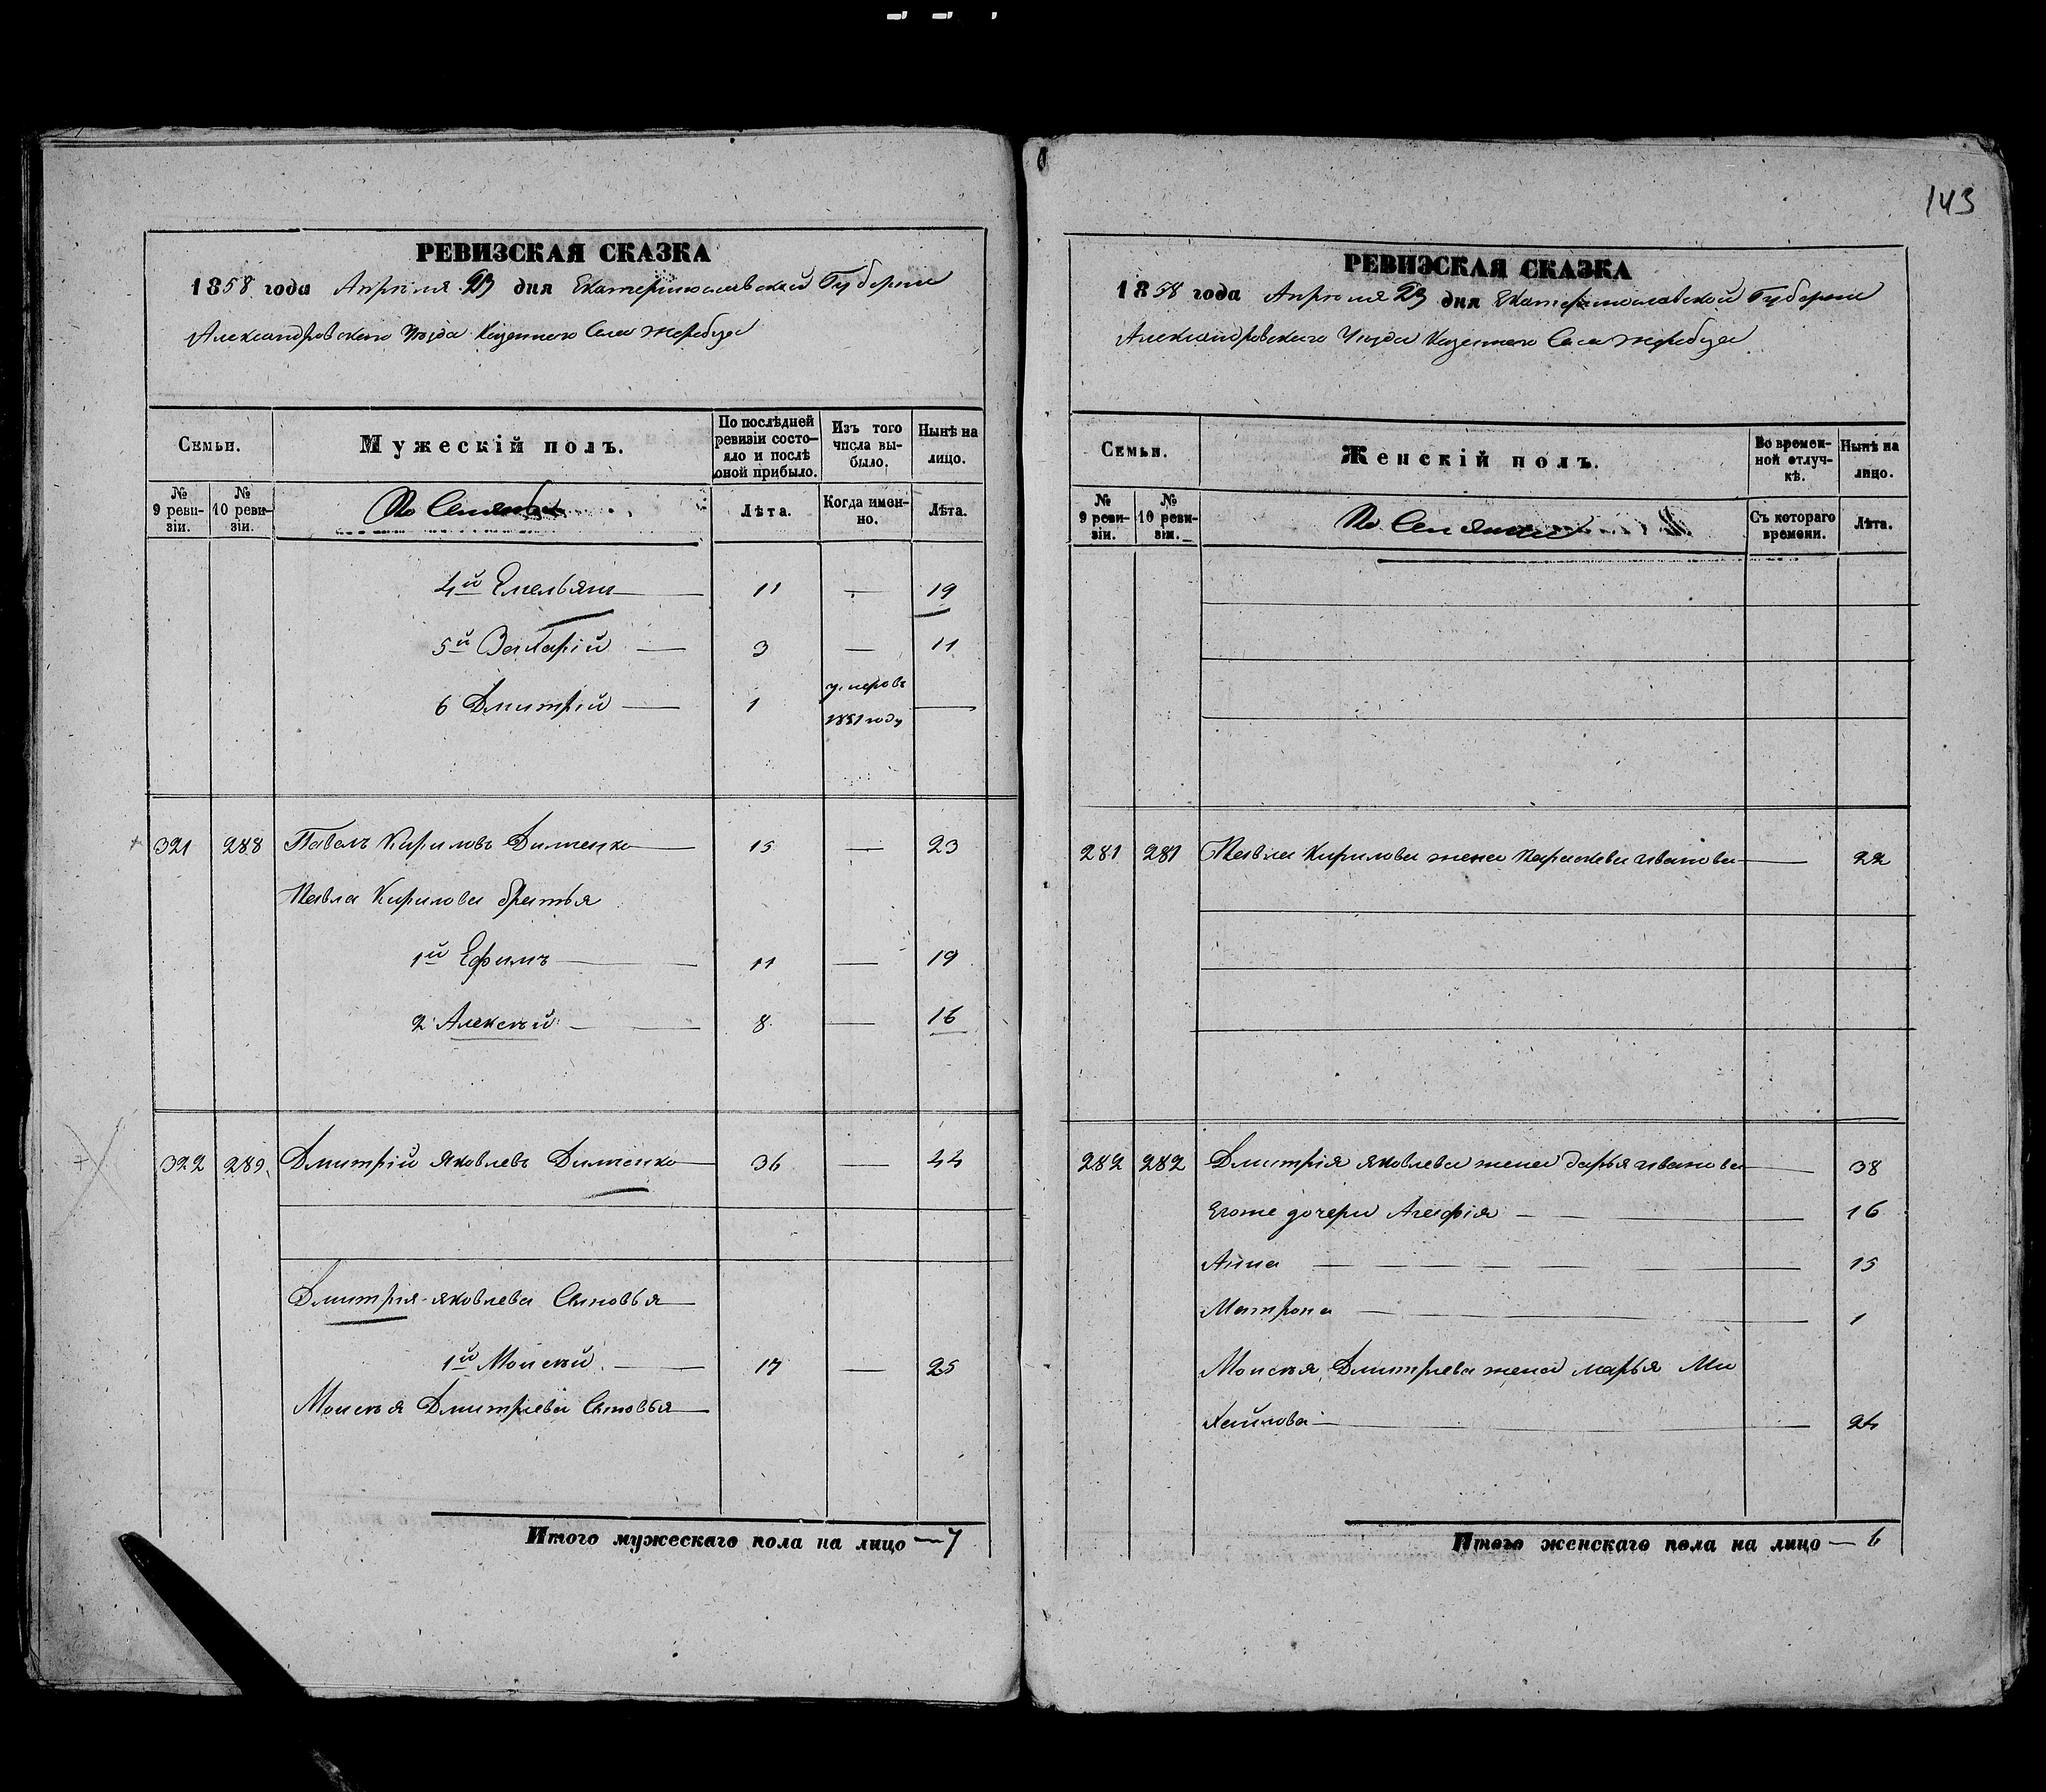 143
РЕВИЗСКАЯ СКАЗКА
1858 года Апреля 23 дня Екатеринославской Губернии
Александровского Уезда Казенного Села Жеребца
Семьи.
Мужескій полъ.
По послѣдней ревизіи состо-яло и послѣ оной прибыло.
Изъ того числа вы-было.
Нынѣ на лицо.
№ 9 реви-зіи.
№ 10 реви-зіи.
Лѣта.
Когда имен-но.
Лѣта.
4й Емельянъ 11 — 19
5й Захарій 3 — 11
6 Дмитрій 1 умеръ въ 1851 году —
321 288 Павелъ Кириловъ Дименко 15 — 23
Павла Кирилова братья
1й Ефимъ 11 — 19
2 Алексѣй 8 — 16
322 289 Дмитрій Яковлевъ Дименко 36 — 44
Дмитрія Яковлева Сыновья
1й Моисѣй 17 — 25
Моисѣя Дмитріева Сыновья
Итого мужескаго пола на лицо — 7
РЕВИЗСКАЯ СКАЗКА
1858 года Апреля 23 дня Екатеринославской Губернии
Александровского Уезда Казенного Села Жеребца
Семьи.
Женскій полъ.
Во времен-ной отлуч-кѣ.
Нынѣ на лицо.
№ 9 реви-зіи.
№ 10 реви-зіи.
Съ котораго времени.
Лѣта.
281 281 Павла Кирилова жена Параскева Иванова — 22
282 282 Дмитрія Яковлева жена Дарья Иванова — 38
Егоже дочери Агафія — 16
Анна — 15
Матрона — 1
Моисѣя Дмитріева жена Марья Ми
хайлова — 24
Итого женскаго пола на лицо — 6